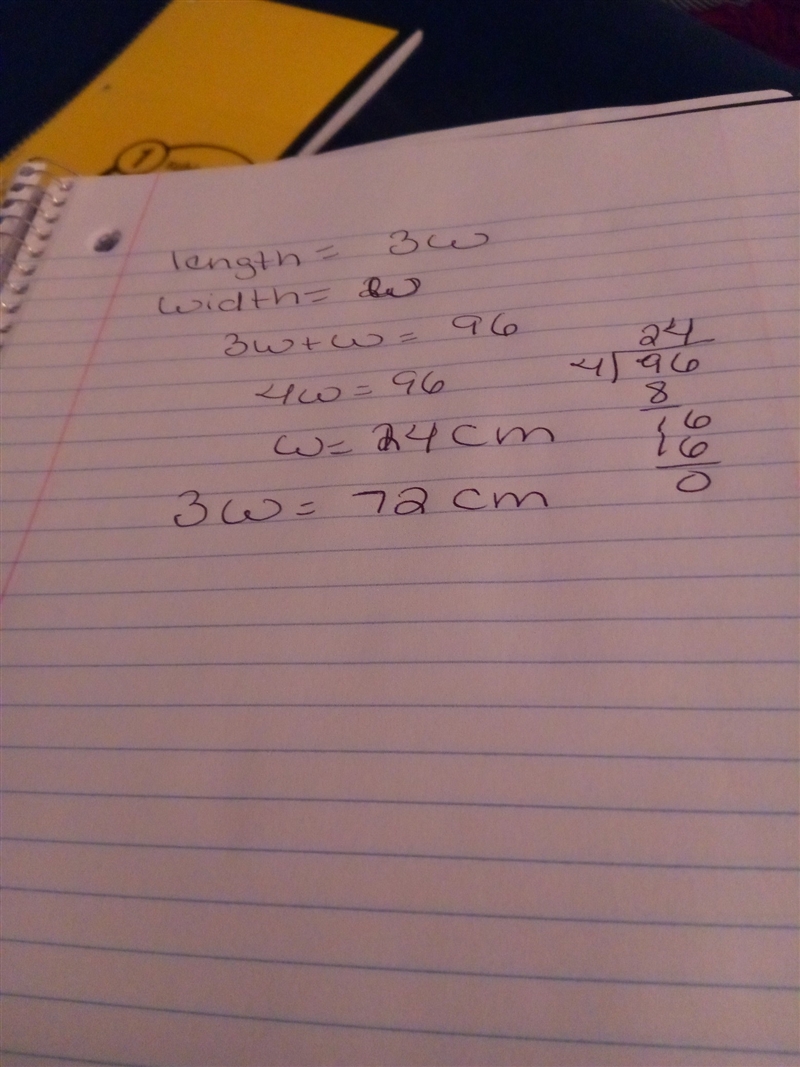 1
length = 3w
width = w
3w + w = 96
4w = 96
w = 24 cm
3w = 72 cm
24
4) 96
8
16
16
0